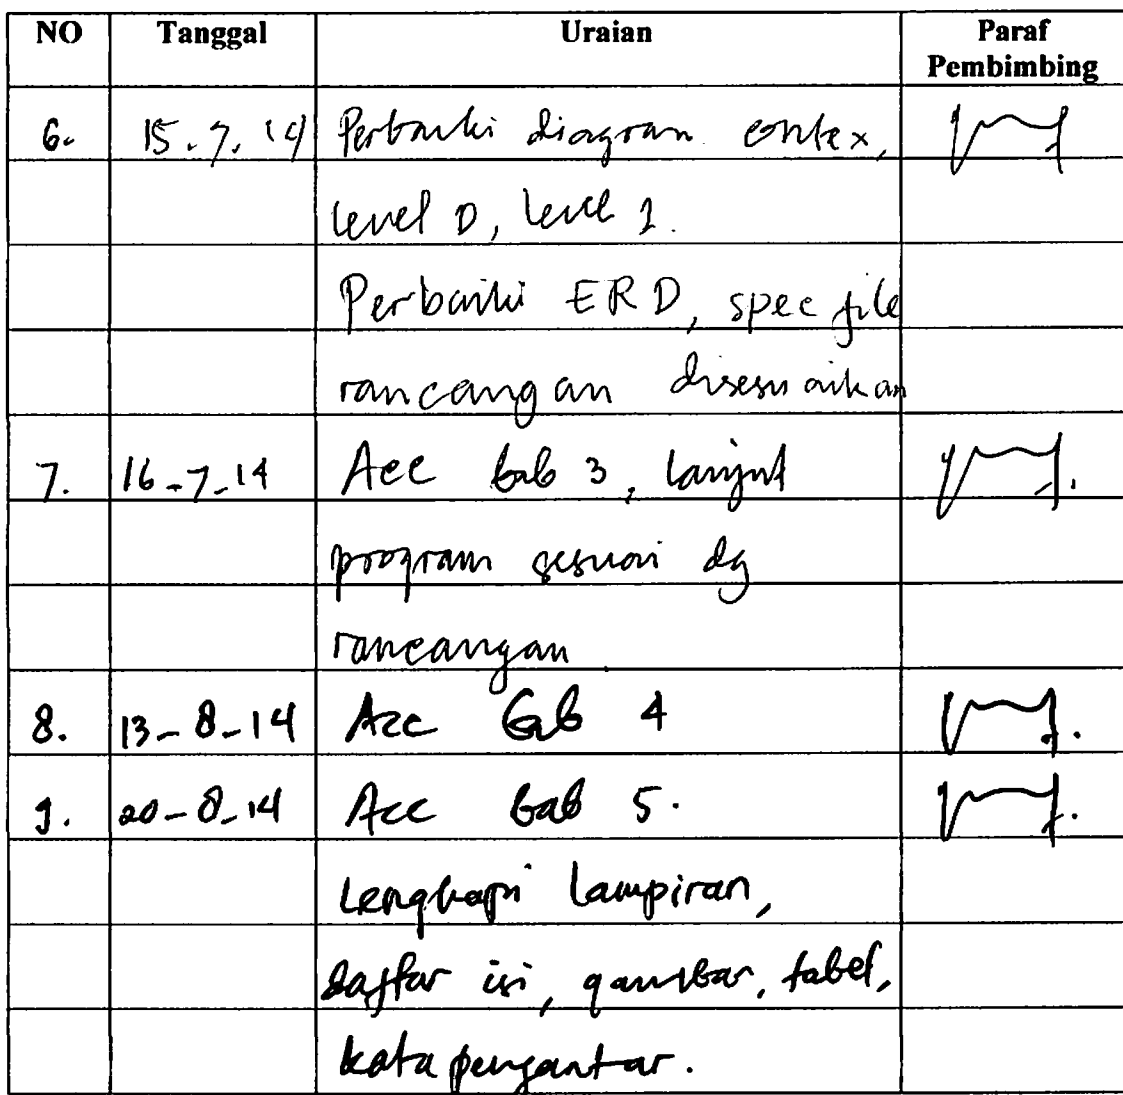 NO Tanggal Uraian Paraf Pembimbing
6. 15.7.14 Perbaiki diagram contex,
level 0, level 1.
Perbaiki ERD, spec file
rancangan disesuaikan
7. 16-7-14 Acc bab 3, lanjut
program sesuai dg
rancangan
8. 13-8-14 Acc Bab 4
9. 20-8-14 Acc bab 5.
Lengkapi lampiran,
daftar isi, gambar, tabel,
kata pengantar.